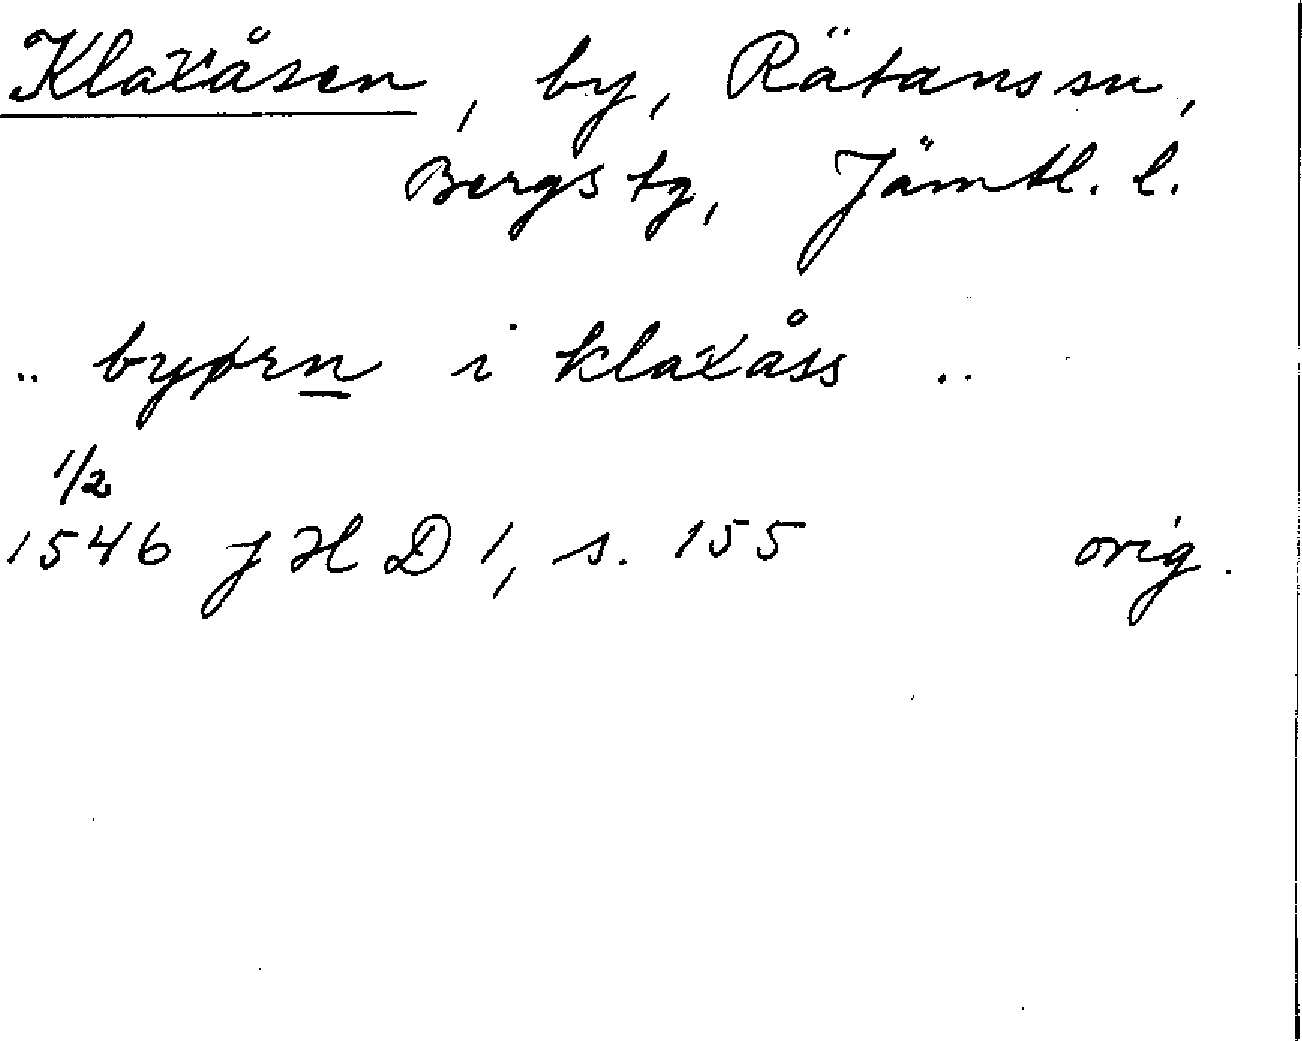 Klaxåsen, by, Rätans sn,
Bergs tg, Jämtl. l.
.. byørn i klaxåss ..
1/2
1546 JHD 1, s. 155 orig.